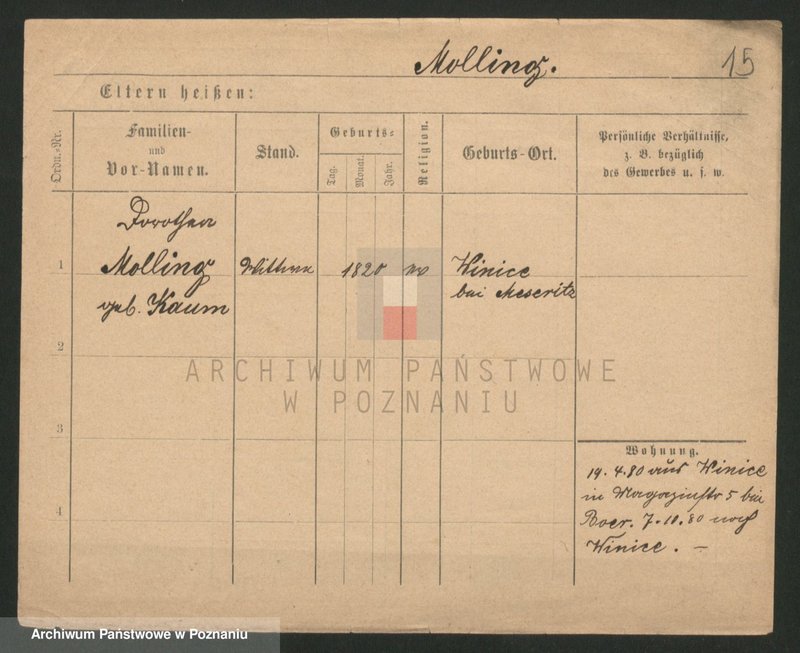 Molling. 15
Eltern heißen:
Ordn.-Nr.
Familien-
und
Vor-Namen.
Stand.
Geburts-
Tag.
Monat.
Jahr.
Religion.
Geburts-Ort.
Persönliche Verhältnisse,
z. B. bezüglich
des Gewerbes u. s. w.
Dorothea
1 Molling Wittwe 1820 Winice
geb. Kaum bei Meseritz
2
ARCHIWUM PAŃSTWOWE
W POZNANIU
3
Wohnung.
19. 4. 80 aus Winice
in Magazinstr 5 bei
4
Boer. 7. 10. 80 nach
Winice. —
Archiwum Państwowe w Poznaniu